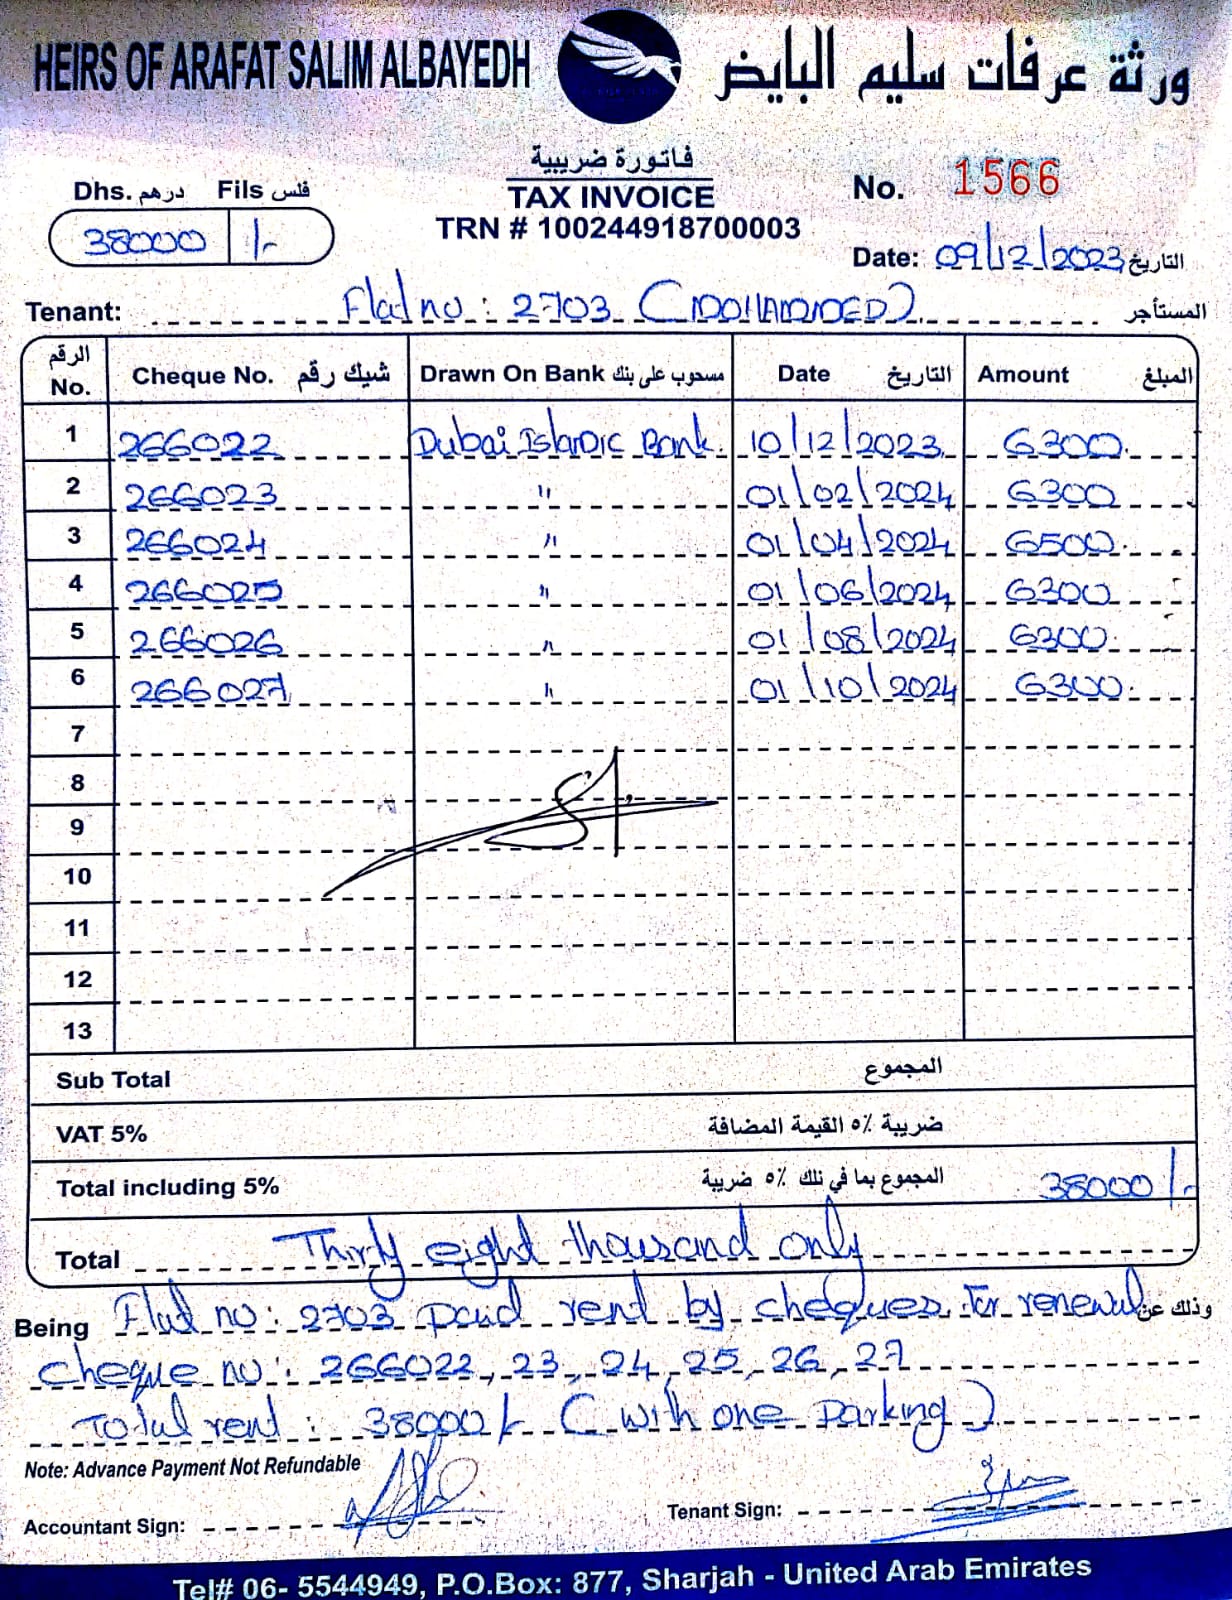 HEIRS OF ARAFAT SALIM ALBAYEDH ورثة عرفات سليم البايض
فاتورة ضريبية
TAX INVOICE
TRN # 100244918700003
Dhs. درهم Fils فلس
38000 /-
No. 1566
Date: 09/12/2023 التاريخ
Tenant: Flat no : 2703 (MOHAMMED) المستأجر
الرقم No. Cheque No. شيك رقم Drawn On Bank مسحوب على بنك Date التاريخ Amount المبلغ
1 266022 Dubai Islamic Bank. 10/12/2023 6300
2 266023 " 01/02/2024 6300
3 266024 " 01/04/2024 6500
4 266025 " 01/06/2024 6300
5 266026 " 01/08/2024 6300
6 266027 " 01/10/2024 6300
7
8
9
10
11
12
13
Sub Total المجموع
VAT 5% ضريبة ٥٪ القيمة المضافة
Total including 5% المجموع بما في ذلك ٥٪ ضريبة 38000/-
Total Thirty eight thousand only
Being Flat no : 2703 paid rent by cheques for renewal وذلك عن
cheque no : 266022, 23, 24, 25, 26, 27
Total rent : 38000/- (with one parking)
Note: Advance Payment Not Refundable
Accountant Sign: Tenant Sign:
Tel# 06- 5544949, P.O.Box: 877, Sharjah - United Arab Emirates